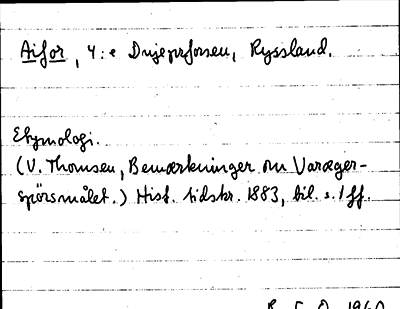 Aifor, 4:e Dnjeprforsen, Ryssland.
Etymologi.
(V. Thomsen, Bemærkninger om Varæger-
spörsmålet.) Hist. tidskr. 1883, bil. s. 1 ff.